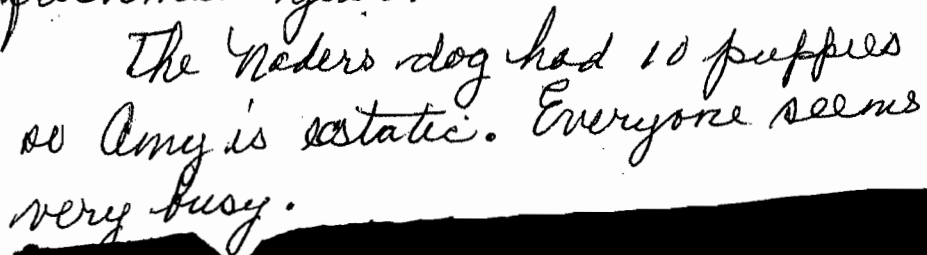 The Naders dog had 10 puppies
so Amy is estatic. Everyone seems
very busy.